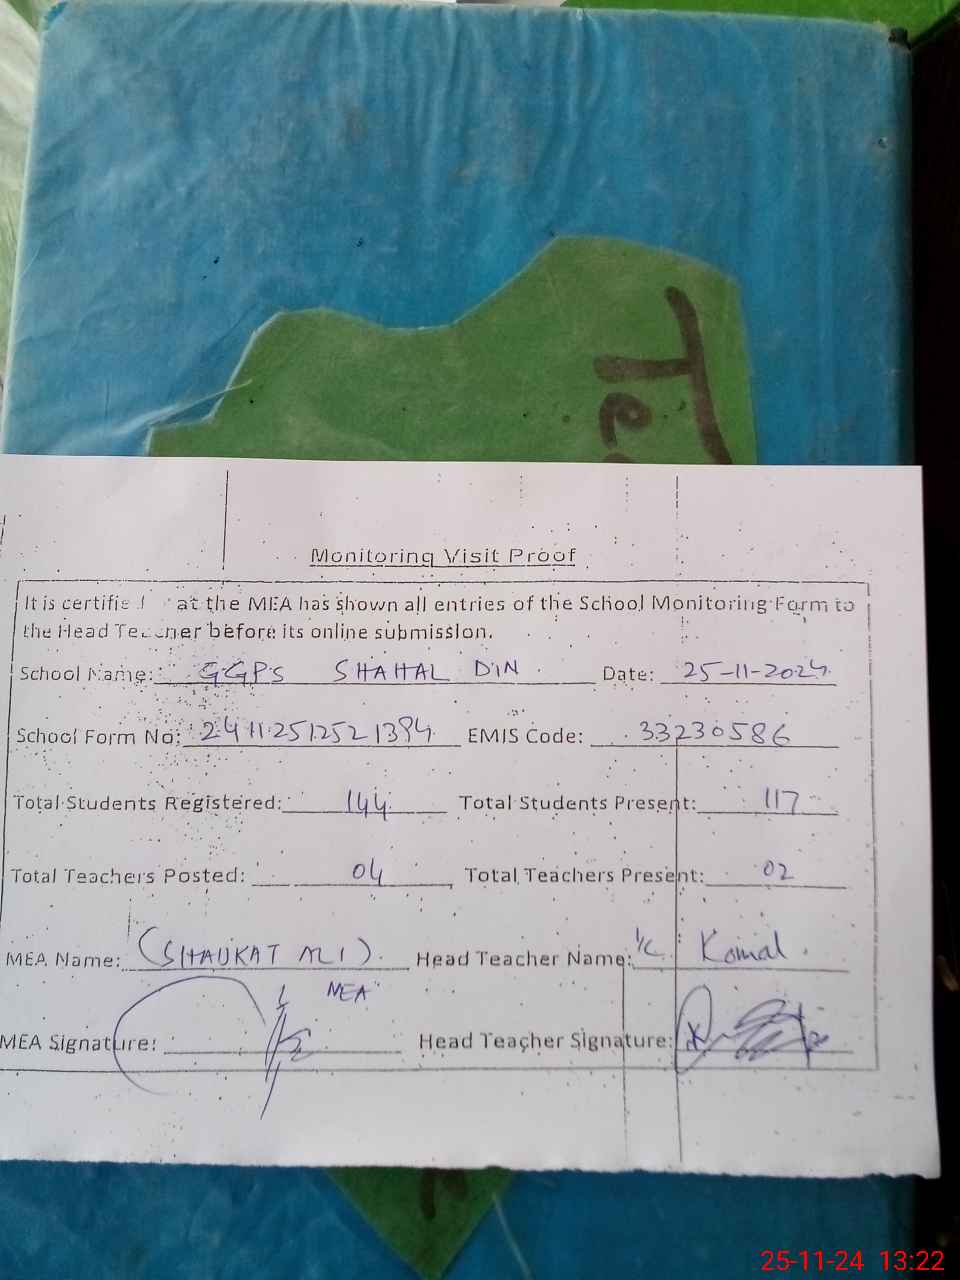 Te
Monitoring Visit Proof
It is certified that the MEA has shown all entries of the School Monitoring Form to
the Head Teacher before its online submission.
School Name: GGPS SHAHAL DIN Date: 25-11-2024
School Form No: 24112512521394 EMIS Code: 33230586
Total Students Registered: 144 Total Students Present: 117
Total Teachers Posted: 04 Total Teachers Present: 02
MEA Name: (SHAUKAT ALI) Head Teacher Name: I/C Komal
MEA
MEA Signature: Head Teacher Signature:
25-11-24 13:22